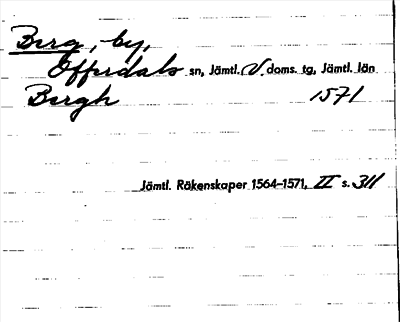 Berg, by,
Offerdals sn, Jämtl. V. doms. tg, Jämtl. län
Bergh 1571
Jämtl. Räkenskaper 1564–1571, II s. 311